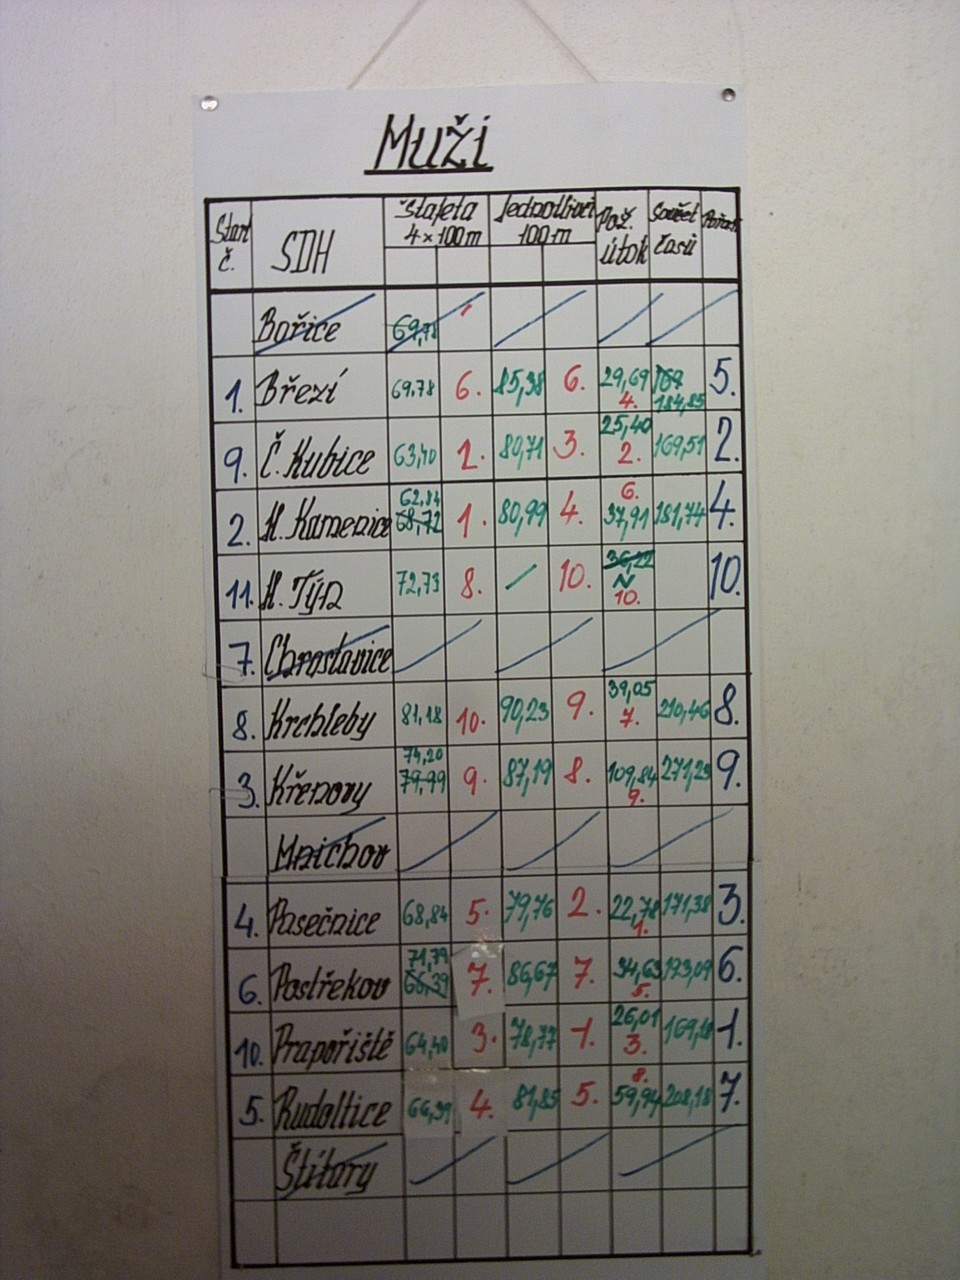 Muži
Start č. SDH Štafeta 4×100m Jednotlivci 100m Pož. útok Součet časů Pořadí
Bořice 69,78
1. Březí 69,78 6. 85,38 6. 29,69 4. 169 184,85 5.
9. Č. Kubice 63,40 2. 80,71 3. 25,40 2. 169,51 2.
2. H. Kamenice 62,84 68,72 1. 80,99 4. 6. 37,91 181,74 4.
11. H. Týn 72,73 8. 10. 36,22 N 10. 10.
7. Chrastavice
8. Krchleby 81,18 10. 90,23 9. 39,05 7. 210,46 8.
3. Křenovy 74,20 79,99 9. 87,19 8. 109,84 9. 271,23 9.
Mnichov
4. Pasečnice 68,84 5. 79,76 2. 22,78 1. 171,38 3.
6. Postřekov 71,79 66,39 7. 86,67 7. 34,63 5. 193,09 6.
10. Prapořiště 64,40 3. 78,77 1. 26,01 3. 169,18 1.
5. Rudoltice 66,39 4. 81,85 5. 8. 59,94 208,18 7.
Štítary